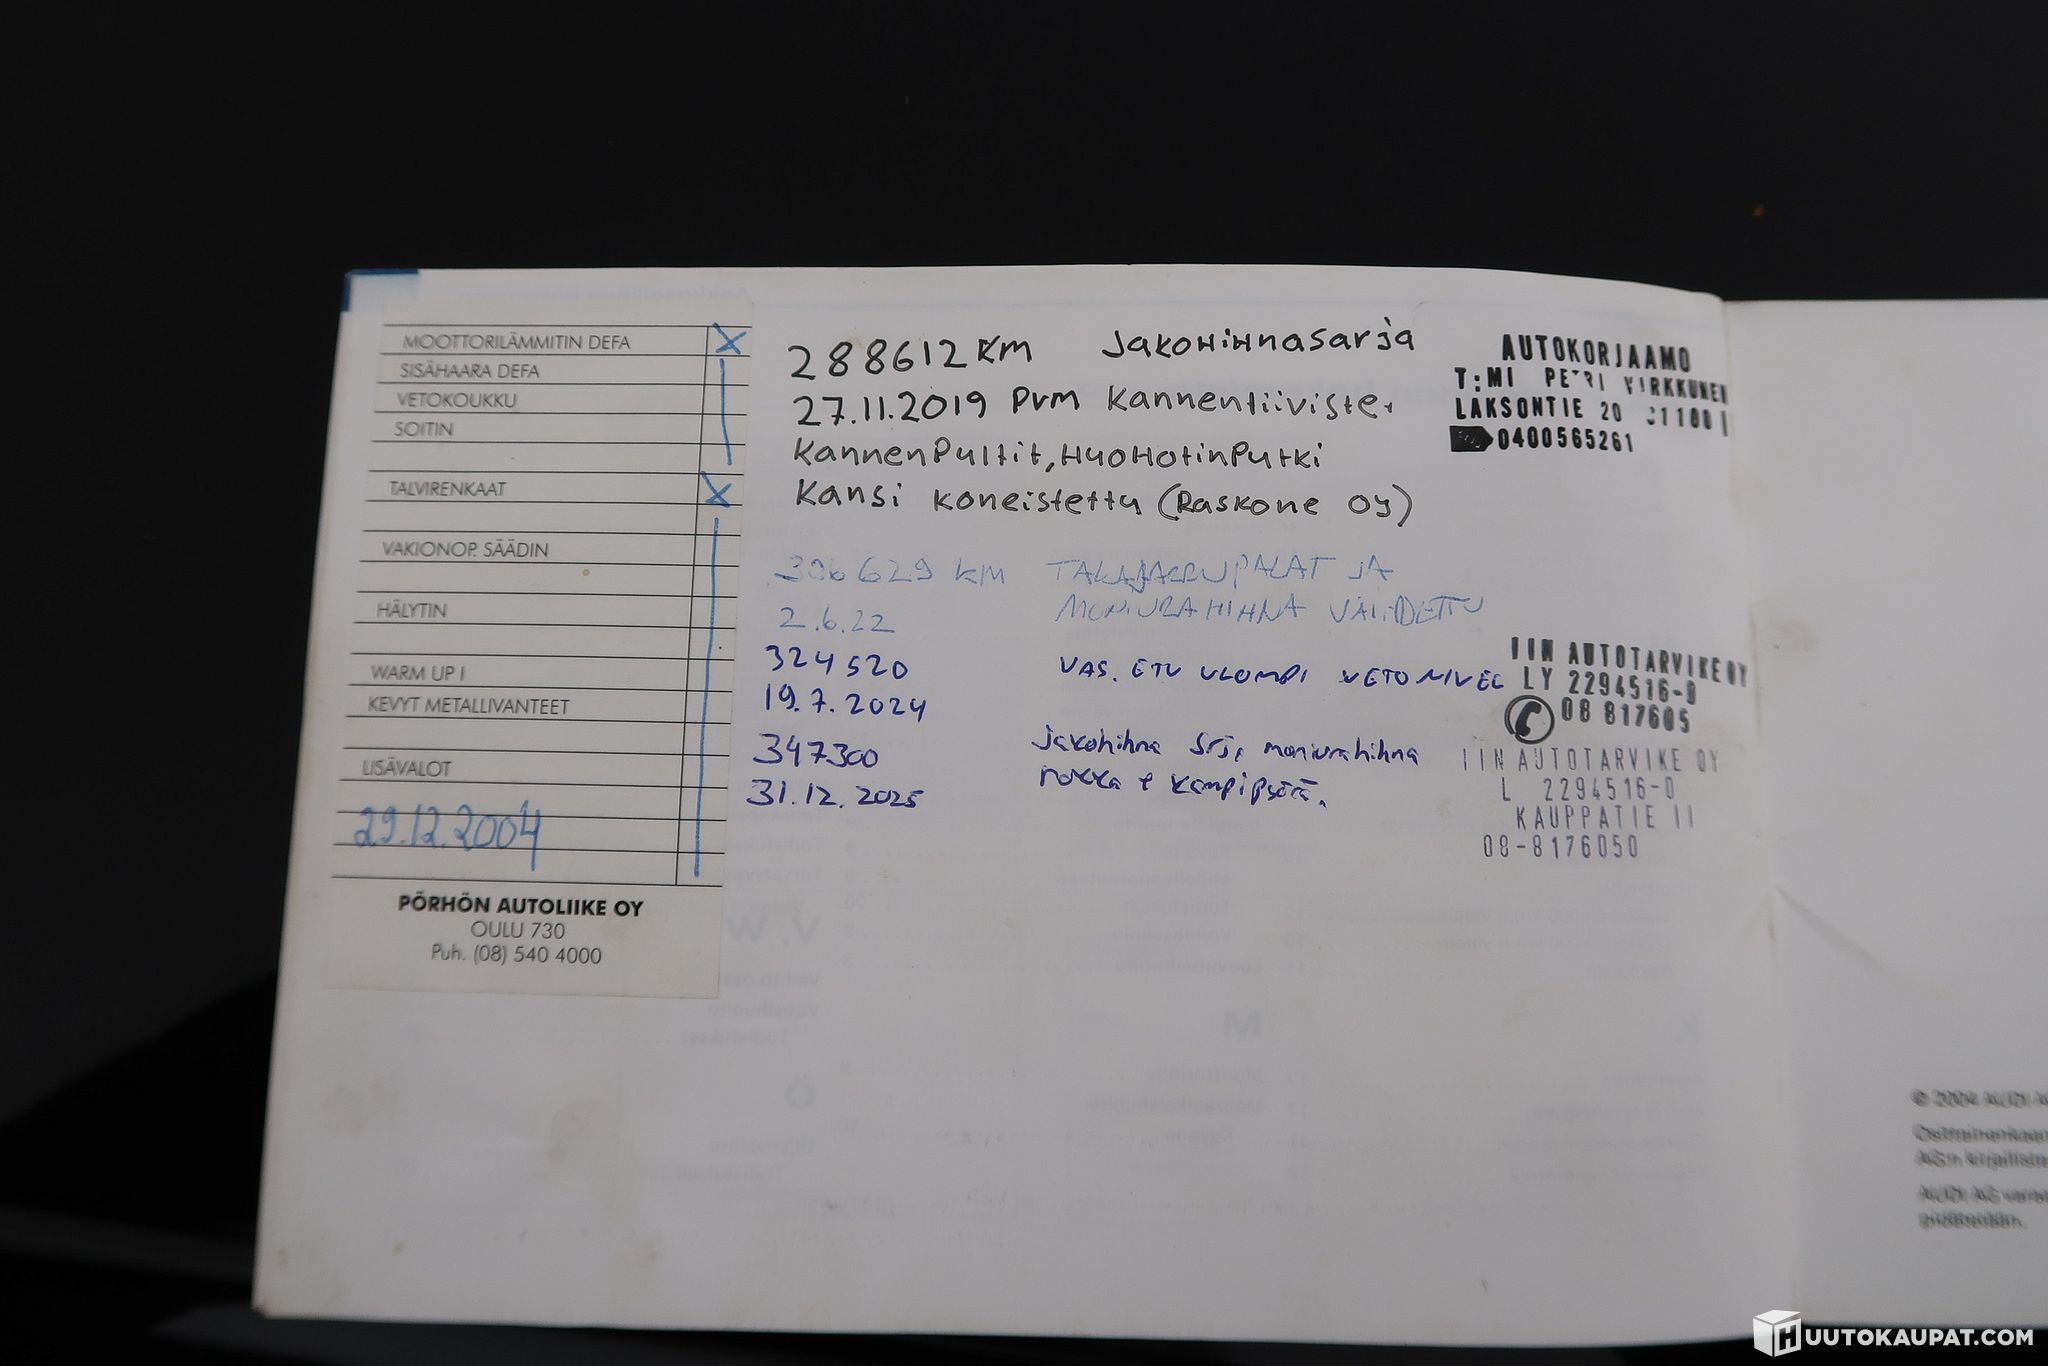 MOOTTORILÄMMITIN DEFA X
SISÄHAARA DEFA
VETOKOUKKU
SOITIN
TALVIRENKAAT X
VAKIONOP. SÄÄDIN
HÄLYTIN
WARM UP I
KEVYT METALLIVANTEET
LISÄVALOT
29.12.2004
PÖRHÖN AUTOLIIKE OY
OULU 730
Puh. (08) 540 4000
288612 KM Jakohihnasarja
27.11.2019 PVM Kannentiiviste,
KannenPultit, HuoHotinPutki
Kansi koneistettu (Raskone OY)
306629 KM TAKAJARRUPALAT JA
2.6.22 MONIURAHIHNA VAIHDETTU
324520 VAS. ETU ULOMPI VETONIVEL
19.7.2024
347300 jakohihna srj, moniurahihna
31.12.2025 nokka + kampi
AUTOKORJAAMO
T:MI PETRI VIRKKUNEN
LAKSONTIE 20 91100 I
0400565261
IIN AUTOTARVIKE OY
LY 2294516-0
08 817605
IIN AUTOTARVIKE OY
L 2294516-0
KAUPPATIE II
08-8176050
© 2004 AUDI A
AG:n
AUDI AG
HUUTOKAUPAT.COM